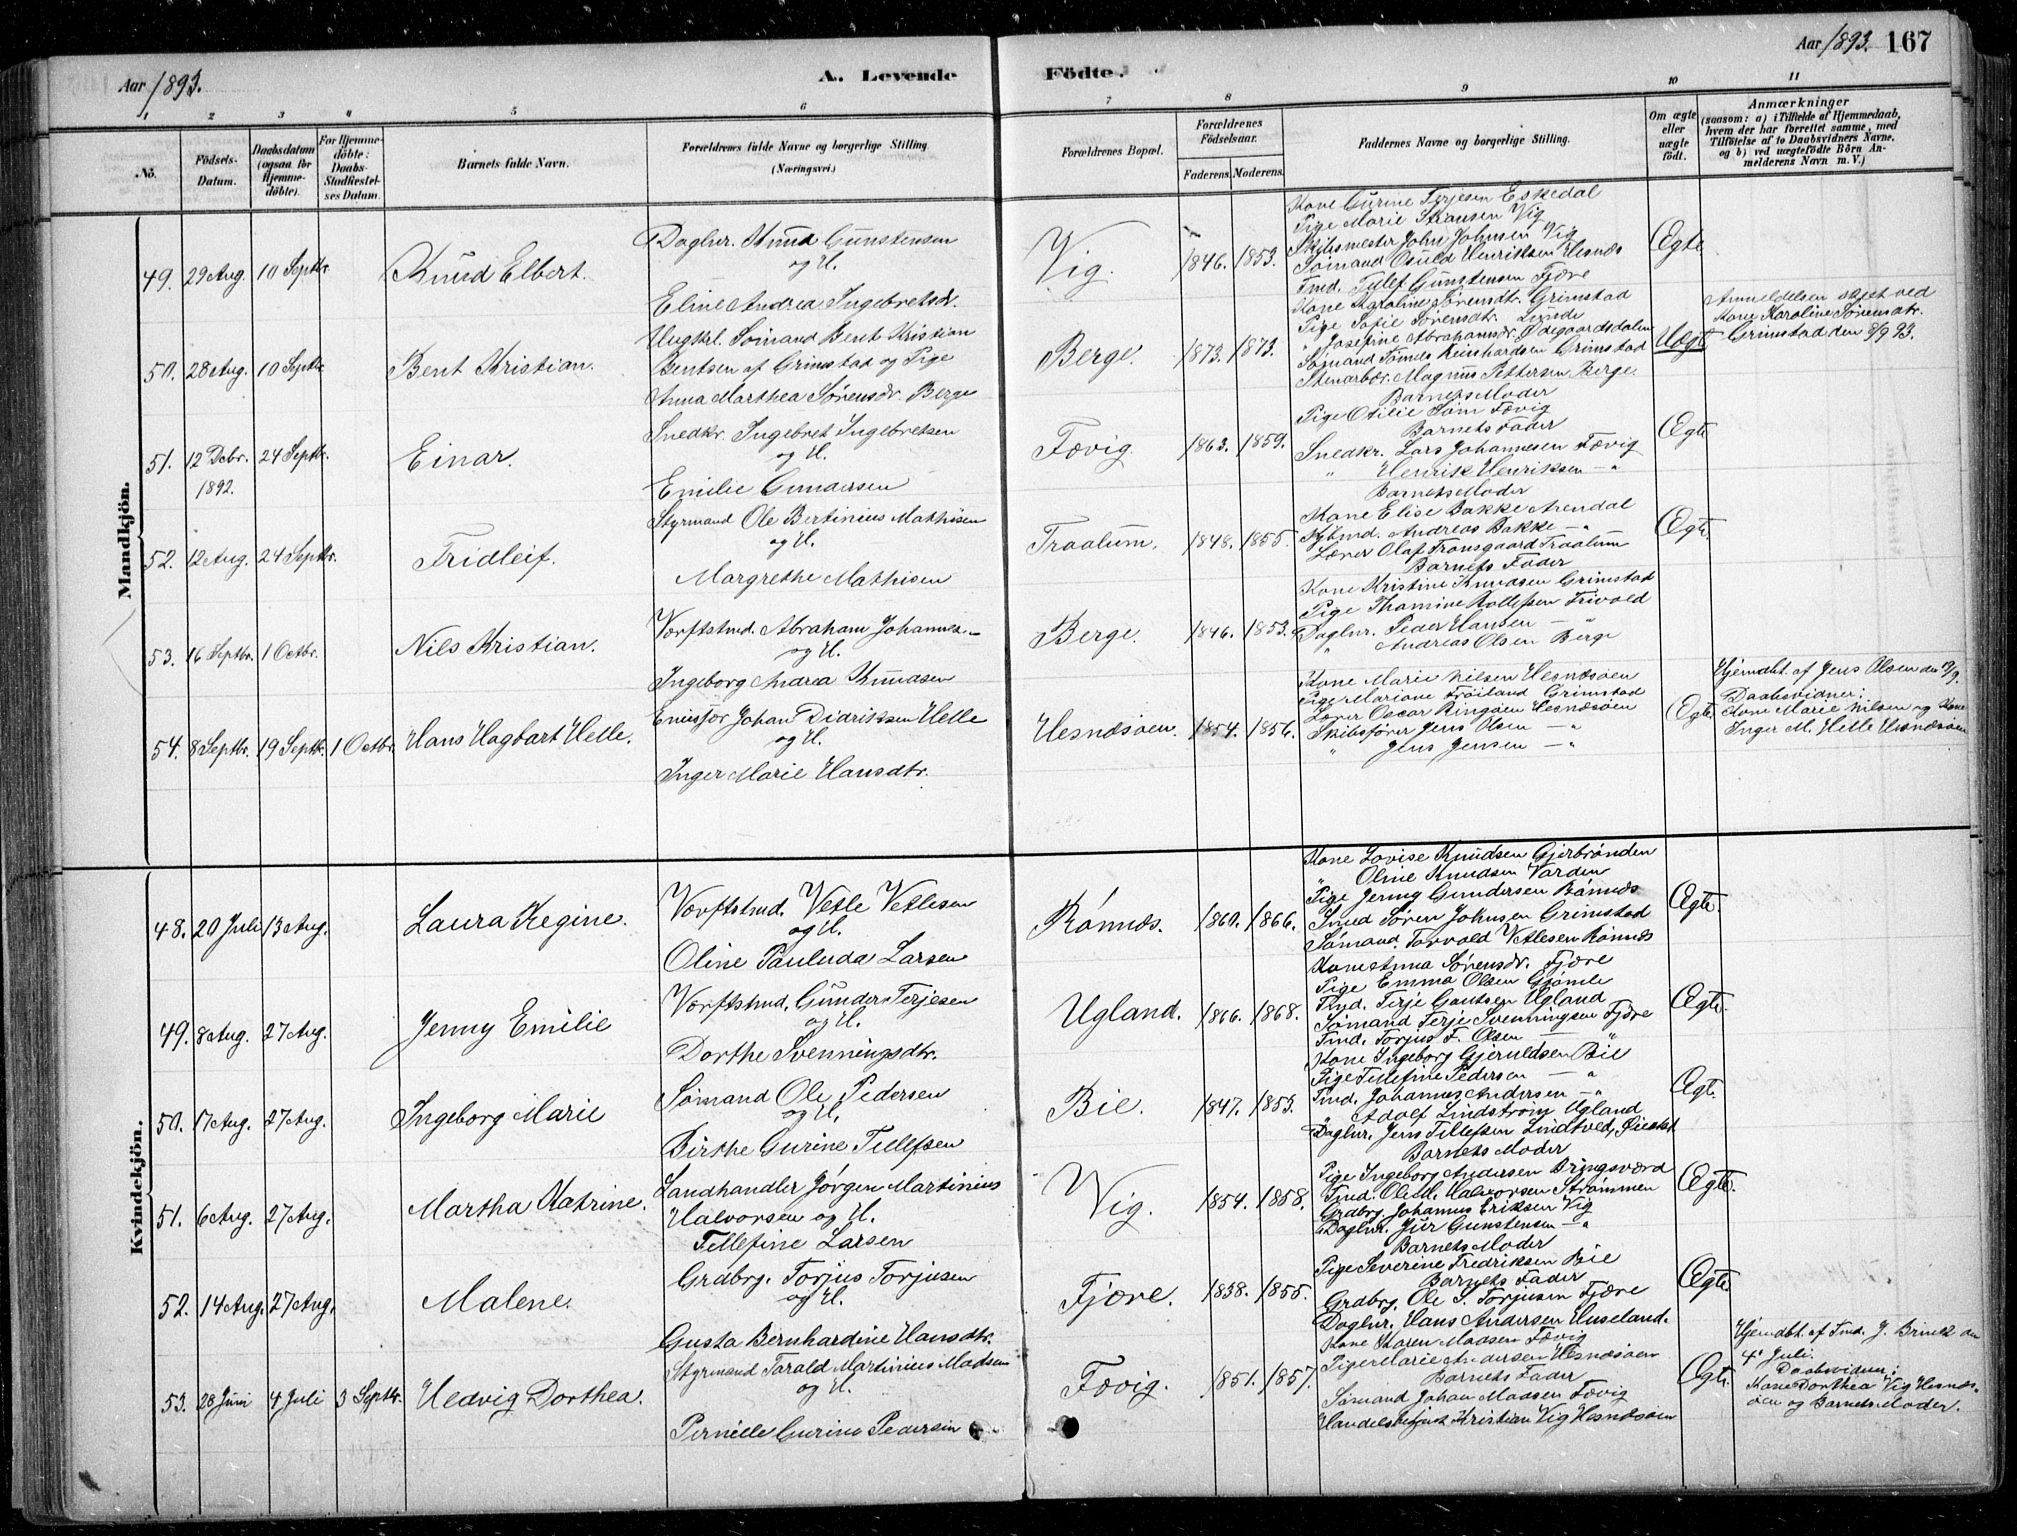 Aar 1893.
A. Levende Födte.
Aar 1893. 167
1 2 3 4 5 6 7 8 9 10 11
No.
Födsels-Datum.
Daabsdatum (ogsaa for Hjemme-döbte).
For Hjemme-döbte: Daabs-Stadfæstelses Datum.
Barnets fulde Navn.
Forældrenes fulde Navne og borgerlige Stilling. (Næringsvei.)
Forældrenes Bopæl.
Forældrenes Födselsaar. Faderens. Moderens.
Faddernes Navne og borgerlige Stilling.
Om ægte eller uægte födt.
Anmærkninger (saasom: a) i Tilfælde af Hjemmedaab, hvem der har forrettet samme, med Tilföielse af to Daabsvidners Navne. og b) ved uægtefödte Börn Anmelderens Navn m. V.)
Mandkjön.
49. 29 Aug. 10 Septbr. Knud Elbert.
Daglnr. Knud Gunstensen
og H.
Eline Andrea Ingebretsdr.
Vig. 1846. 1853.
Kone Gurine Terjesen Eskedal
Pige Marie Hansen Vig
Skibsmester John Johnsen Vig
Sømand Osuld Henriksen Hesnæs
Fmd. Tellef Gunstensen Fjære
Ægte
50. 28 Aug. 10 Septbr. Bent Kristian.
Ungkrl. Sømand Bent Kristian
Bentsen af Grimstad og Pige
Anna Marthea Sørensdr. Berge
Berge. 1873. 1873.
Kone Karoline Sørensdtr. Grimstad
Pige Sofie Sørensdtr. Lunde
" Josefine Abrahamsdr. Ødegaardsdalen
Sømand Tønnes Reinhardsen Grimstad
Stenarbdr. Magnus Pettersen Berge.
Uægt
Anmeldelsen skjet ved
Kone Karoline Sørensdtr.
Grimstad den 8/9 93.
51. 12 Debr. 1892. 24 Septbr. Einar.
Snedkr. Ingebret Ingebretsen
og H.
Emilie Gundersen
Fævig. 1863. 1859.
Barnets Moder
Pige Otilie Søm Fævig
Barnets Fader
Snedkr. Lars Johannesen Fævig
" Henrik Henriksen — "
Ægte
52. 12 Aug. 24 Septbr. Fridleif.
Styrmand Ole Bertinius Mathisen
og H.
Margrethe Mathisen
Traalum. 1848. 1855.
Barnets Moder
Kone Elise Bakke Arendal
Andreas Bakke — "
Lærer Olaf Fransgaard Traalum
Barnets Fader
Ægte
53. 16 Septbr. 1 Octbr. Nils Kristian.
Værftstmd. Abraham Johannes.
og H.
Ingeborg Andrea Knudsen
Berge. 1846. 1853.
Kone Kristine Knudsen Grimstad
Pige Thomine Rollefsen Frivold
Daglnr. Peder Hansen — "
" Andreas Olsen Berge
54. 8 Septbr. 19 Septbr. 1 Octbr. Hans Hagbart Helle.
Johan Didriksen Helle
og H.
Inger Marie Hansdtr.
Hesnæsøen. 1854. 1856.
Kone Marie Nilsen Hesnæsøen
Pige Mariane Frøiland Grimstad
Lærer Oscar Ringøen Hesnæsøen
Skibsfører Jens Olsen — "
" Jens Jensen — "
Ægte
Hjemdbt. af Jens Olsen den 19/9.
Daabsvidner:
Kone Marie Nilsen og Kone
Inger M. Helle Hesnæsøen
Kvindekjön.
48. 20 Juli 13 Aug. Laura Regine.
Værftstmd. Vetle Vetlesen
og H.
Oline Pauluda Larsen
Rønnæs. 1860. 1866.
Kone Lovise Knudsen Gjerbrønden
" Oline Knudsen Varden
Pige Jenny Gundersen Rønnæs
Smed Søren Johnsen Grimstad
Sømand Torvald Vetlesen Rønnæs
Ægte.
49. 8 Aug. 27 Aug. Jenny Emilie
Værftstmd. Gunder Terjesen
og H.
Dorthe Svenningsdtr.
Ugland. 1866. 1868.
Kone Anna Sørensdr. Fjære
Pige Emma Olsen Gjømle
Fmd. Terje Gautsen Ugland
Sømand Terje Svenningsen Fjære
Fmd. Torjus F. Olsen — "
Ægte.
50. 17 Aug. 27 Aug. Ingeborg Marie
Sømand Ole Pedersen
og H.
Birthe Gurine Tellefsen
Bie. 1847. 1853.
Kone Ingeborg Gjeruldsen Bie
Pige Tellefine Pedersen — "
Fmd. Johannes Andersen — "
" Adolf Lindstrøm Ugland
Daglnr. Jens Tellefsen Lindtved, Øiestad
Ægte.
51. 6 Aug. 27 Aug. Martha Katrine.
Landhandler Jørgen Martinius
Halvorsen og H.
Tellefine Larsen
Vig. 1854. 1858.
Barnets Moder
Pige Ingeborg Andersen Bringsværd
Fmd. Ole H. Halvorsen Strømmen
Grdbrg. Johannes Eriksen Vig
Daglnr. Jur Gunstensen — "
Ægte.
52. 14 Aug. 27 Aug. Malene.
Grdbrg. Torjus Torjusen
og H.
Gusta Bernhardine Hansdtr.
Fjære. 1838. 1855.
Barnets Moder
Pige Severine Fredriksen Bie
Barnets Fader
Grdbrg. Ole S. Torjusen Fjære
Daglnr. Hans Andersen Huseland.
Ægte.
53. 28 Juni 4 Juli 3 Septbr. Hedvig Dorthea.
Styrmand Tarald Martinius Madsen
og H.
Pernille Gurine Pedersen
Fævig. 1851. 1857.
Kone Karen Maasen Fævig
Pige Marie Andersen Hesnæsøen
Barnets Fader
Sømand Johan Maasen Fævig
Kristian Vig Hesnæsøen
Ægte.
Hjemdbt. af Fmd. J. Brinck den
4' Juli.
Daabsvidner:
Kone Dorthea Vig Hesnæs-
øen og Barnets Moder.